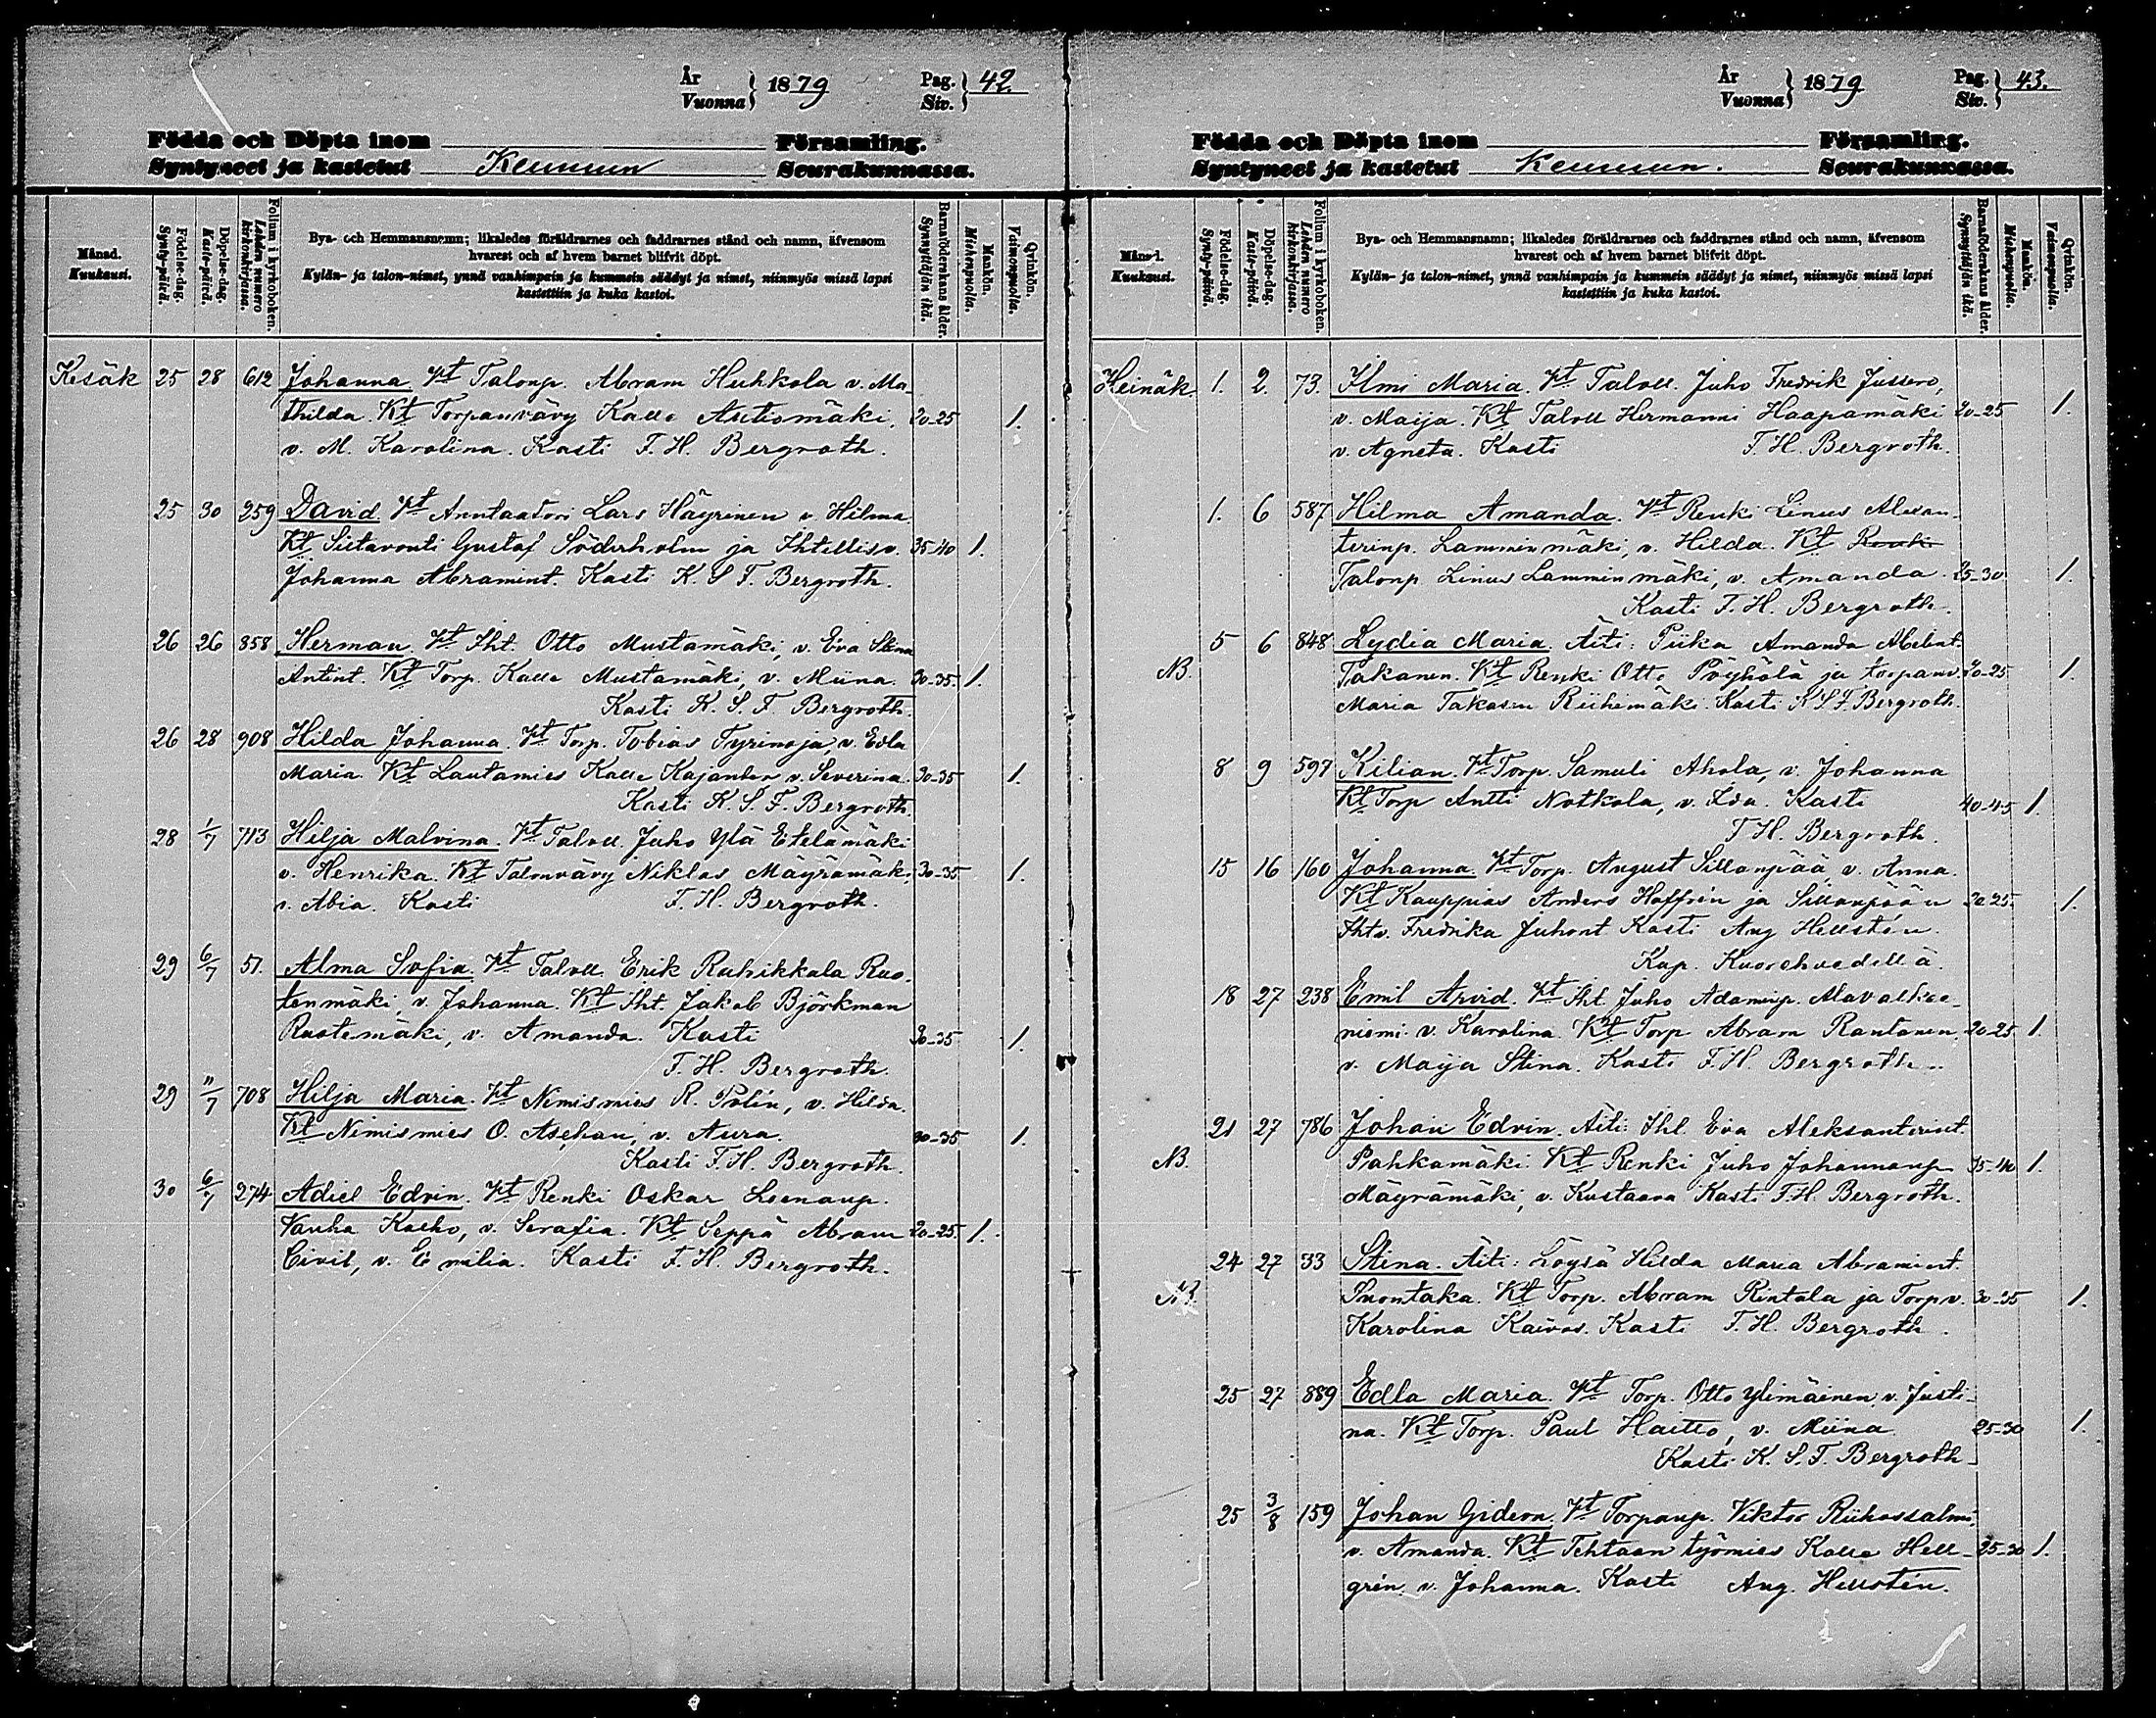 År
Vuonna } 1879
Pag.
Siv. } 42.
Födda och Döpta inom Församling.
Syntyneet ja kastetut Keuruun Seurakunnassa.
Månad.
Kuukausi.
Födelse-dag.
Synty-päivä.
Döpelse-dag.
Kaste-päivä.
Folium i kyrkoboken.
Lehden numero kirkonkirjassa.
Bya- och Hemmansnamn; likaledes föräldrarnes och faddrarnes stånd och namn, äfvensom
hvarest och af hvem barnet blifvit döpt.
Kylän- ja talon-nimet, ynnä vanhimpain ja kummein säädyt ja nimet, niinmyös missä lapsi
kastettiin ja kuka kastoi.
Barnaföderskans ålder.
Synnyttäjän ikä.
Mankön.
Miehenpuolia.
Qvinkön.
Vaimonpuolia.
Kesäk 25 28 612 Johanna Vt Talonp. Abram Huhkola v. Ma-
thilda. Kt Torpanvävy Kalle Autiomäki, 20-25 1.
v. M. Karolina. Kasti F. H. Bergroth.
25 30 259 David Vt Arentaatori Lars Häyrinen v. Hilma
Kt Siltavouti Gustaf Söderholm ja Ihtellisv. 35-40 1.
Johanna Abramint. Kasti K. S. F. Bergroth.
26 26 858 Herman Vt Iht. Otto Mustamäki, v. Eva Stina
Antint. Kt Torp. Kalle Mustamäki, v. Miina. 30-35. 1.
Kasti K. S. F. Bergroth.
26 28 908 Hilda Johanna. Vt Torp. Tobias Tyrinoja, v. Edla
Maria. Kt Lautamies Kalle Kajander v. Severina. 30-35 1.
Kasti K. S. F. Bergroth.
28 1/7 713 Hilja Malvina. Vt Taloll. Juho Ylä Etelämäki
v. Henrika. Kt Talonvävy Niklas Mäyrämäki, 30-35 1.
v. Abia. Kasti F. H. Bergroth.
29 6/7 51. Alma Sofia. Vt Taloll. Erik Ruhikkala Ruo-
tenmäki, v. Johanna. Kt Iht. Jakob Björkman
Ruotemäki, v. Amanda. Kasti 30-35 1.
F. H. Bergroth.
29 11/7 708 Hilja Maria. Vt Nimismies R. Polin, v. Hilda.
Kt Nimismies O. Aschan, v. Aura. 30-35 1.
Kasti F. H. Bergroth.
30 6/7 274 Adiel Edvin. Vt Renki Oskar Leenanp.
Vanha Kaiho, v. Serafia. Kt Seppä Abram 20-25. 1.
Civil, v. Emilia. Kasti F. H. Bergroth.
År
Vuonna } 1879
Pag.
Siv. } 43.
Födda och Döpta inom Församling.
Syntyneet ja kastetut Keuruun. Seurakunnassa.
Kuukausi.
Födelse-dag.
Synty-päivä.
Döpelse-dag.
Kaste-päivä.
Folium i kyrkoboken.
Lehden numero kirkonkirjassa.
Bya- och Hemmansnamn; likaledes föräldrarnes och faddrarnes stånd och namn, äfvensom
hvarest och af hvem barnet blifvit döpt.
Kylän- ja talon-nimet, ynnä vanhimpain ja kummein säädyt ja nimet, niinmyös missä lapsi
kastettiin ja kuka kastoi.
Barnaföderskans ålder.
Synnyttäjän ikä.
Mankön.
Miehenpuolia.
Qvinkön.
Vaimonpuolia.
Heinäk. 1. 2. 73. Ilmi Maria. Vt Taloll. Juho Fredrik Jussero,
v. Maija. Kt Taloll Hermanni Haapamäki 20-25 1.
v. Agneta. Kasti F. H. Bergroth.
1. 6 587 Hilma Amanda. Vt Renki Linus Alexan-
terinp. Lamminmäki, v. Hilda. Kt Renki
Talonp Linus Lamminmäki, v. Amanda. 25-30 1.
Kasti F. H. Bergroth.
5 6 848 Lydia Maria. Äiti: Piika Amanda Abelint.
NB. Takanen. Kt Renki Otto Pöyhölä ja torpanv. 20-25 1.
Maria Takasen Riihimäki. Kasti K S F. Bergroth.
8 9 597 Kilian. Vt Torp. Samuli Ahola, v. Johanna
Kt Torp Antti Notkola, v. Ida. Kasti 40-45 1.
F H. Bergroth.
15 16 160 Johanna. Vt Torp. August Sillanpää, v. Anna.
Kt Kauppias Anders Hoffrén ja Sillanpään 20-25. 1.
Ihtv. Fredrika Juhont Kasti Aug Hellstén
Kap. Kuorehvedellä.
18 27 238 Emil Arvid. Vt Iht. Juho Adaminp. Alavalkia-
niemi v. Karolina. Kt Torp Abram Rantanen, 20-25 1.
v. Maija Stina. Kasti F. H. Bergroth.
21 27 786 Johan Edvin. Äiti: Iht. Eva Aleksanterint.
NB. Pahkamäki. Kt Renki Juho Johannanp 35-40 1.
Mäyrämäki, v. Kustaava Kasti F. H Bergroth.
24 27 33 Stina. Äiti: Löysä Hilda Maria Abramint.
NB. Suontaka. Kt Torp. Abram Rintala ja Torpv. 30-35 1.
Karolina Kaivos. Kasti F. H. Bergroth.
25 27 889 Edla Maria. Vt Torp. Otto Ylimäinen, v. Justi-
na. Kt Torp. Paul Haitto, v. Miina 25-30 1.
Kasti K. S. F. Bergroth
25 3/8 159 Johan Gideon. Vt Torpanp. Viktor Riihossalmi,
v. Amanda. Kt Tehtaan työmies Kalle Hell- 25-30 1.
grén, v. Johanna. Kasti Aug. Hellstén.